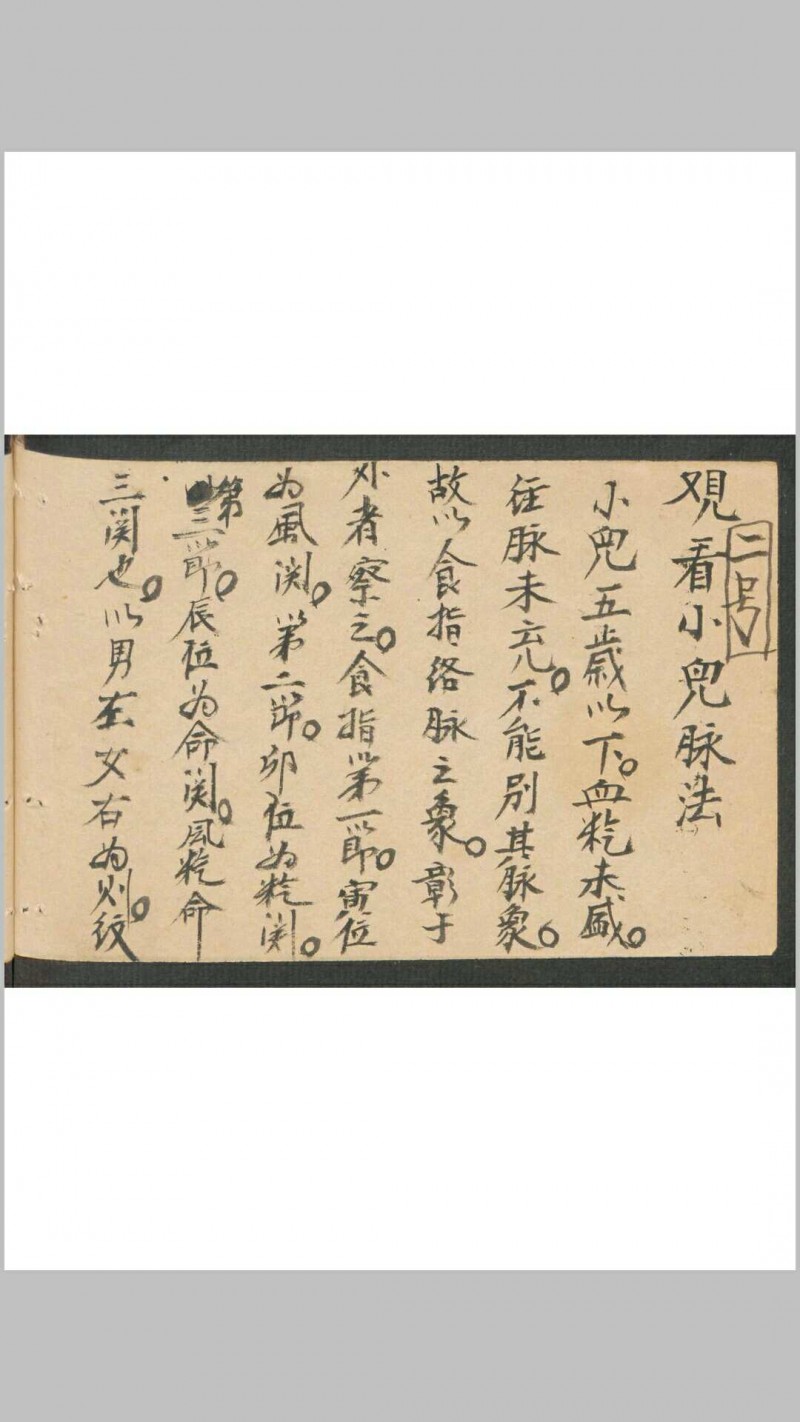 二号
观看小兒脉法
小兒五歲以下。血粇未盛。
径脉未充。不能别其脉象。
故以食指络脉之象。彰于
外者察之。食指第一節。寅位
为風関。第二節。卯位为粇関。
第三節。辰位为命関。風粇命
三関也。以男左女右为则。纹